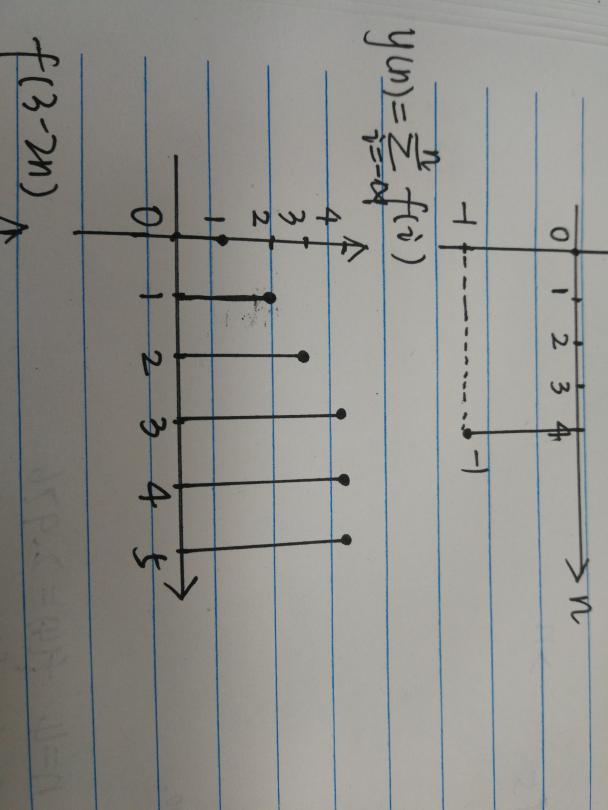 0 1 2 3 4 n
-1 -1
y(n) = \sum_{i=-∞}^{n} f(i)
4
3
2
1
0 1 2 3 4 5
f(3-2n)